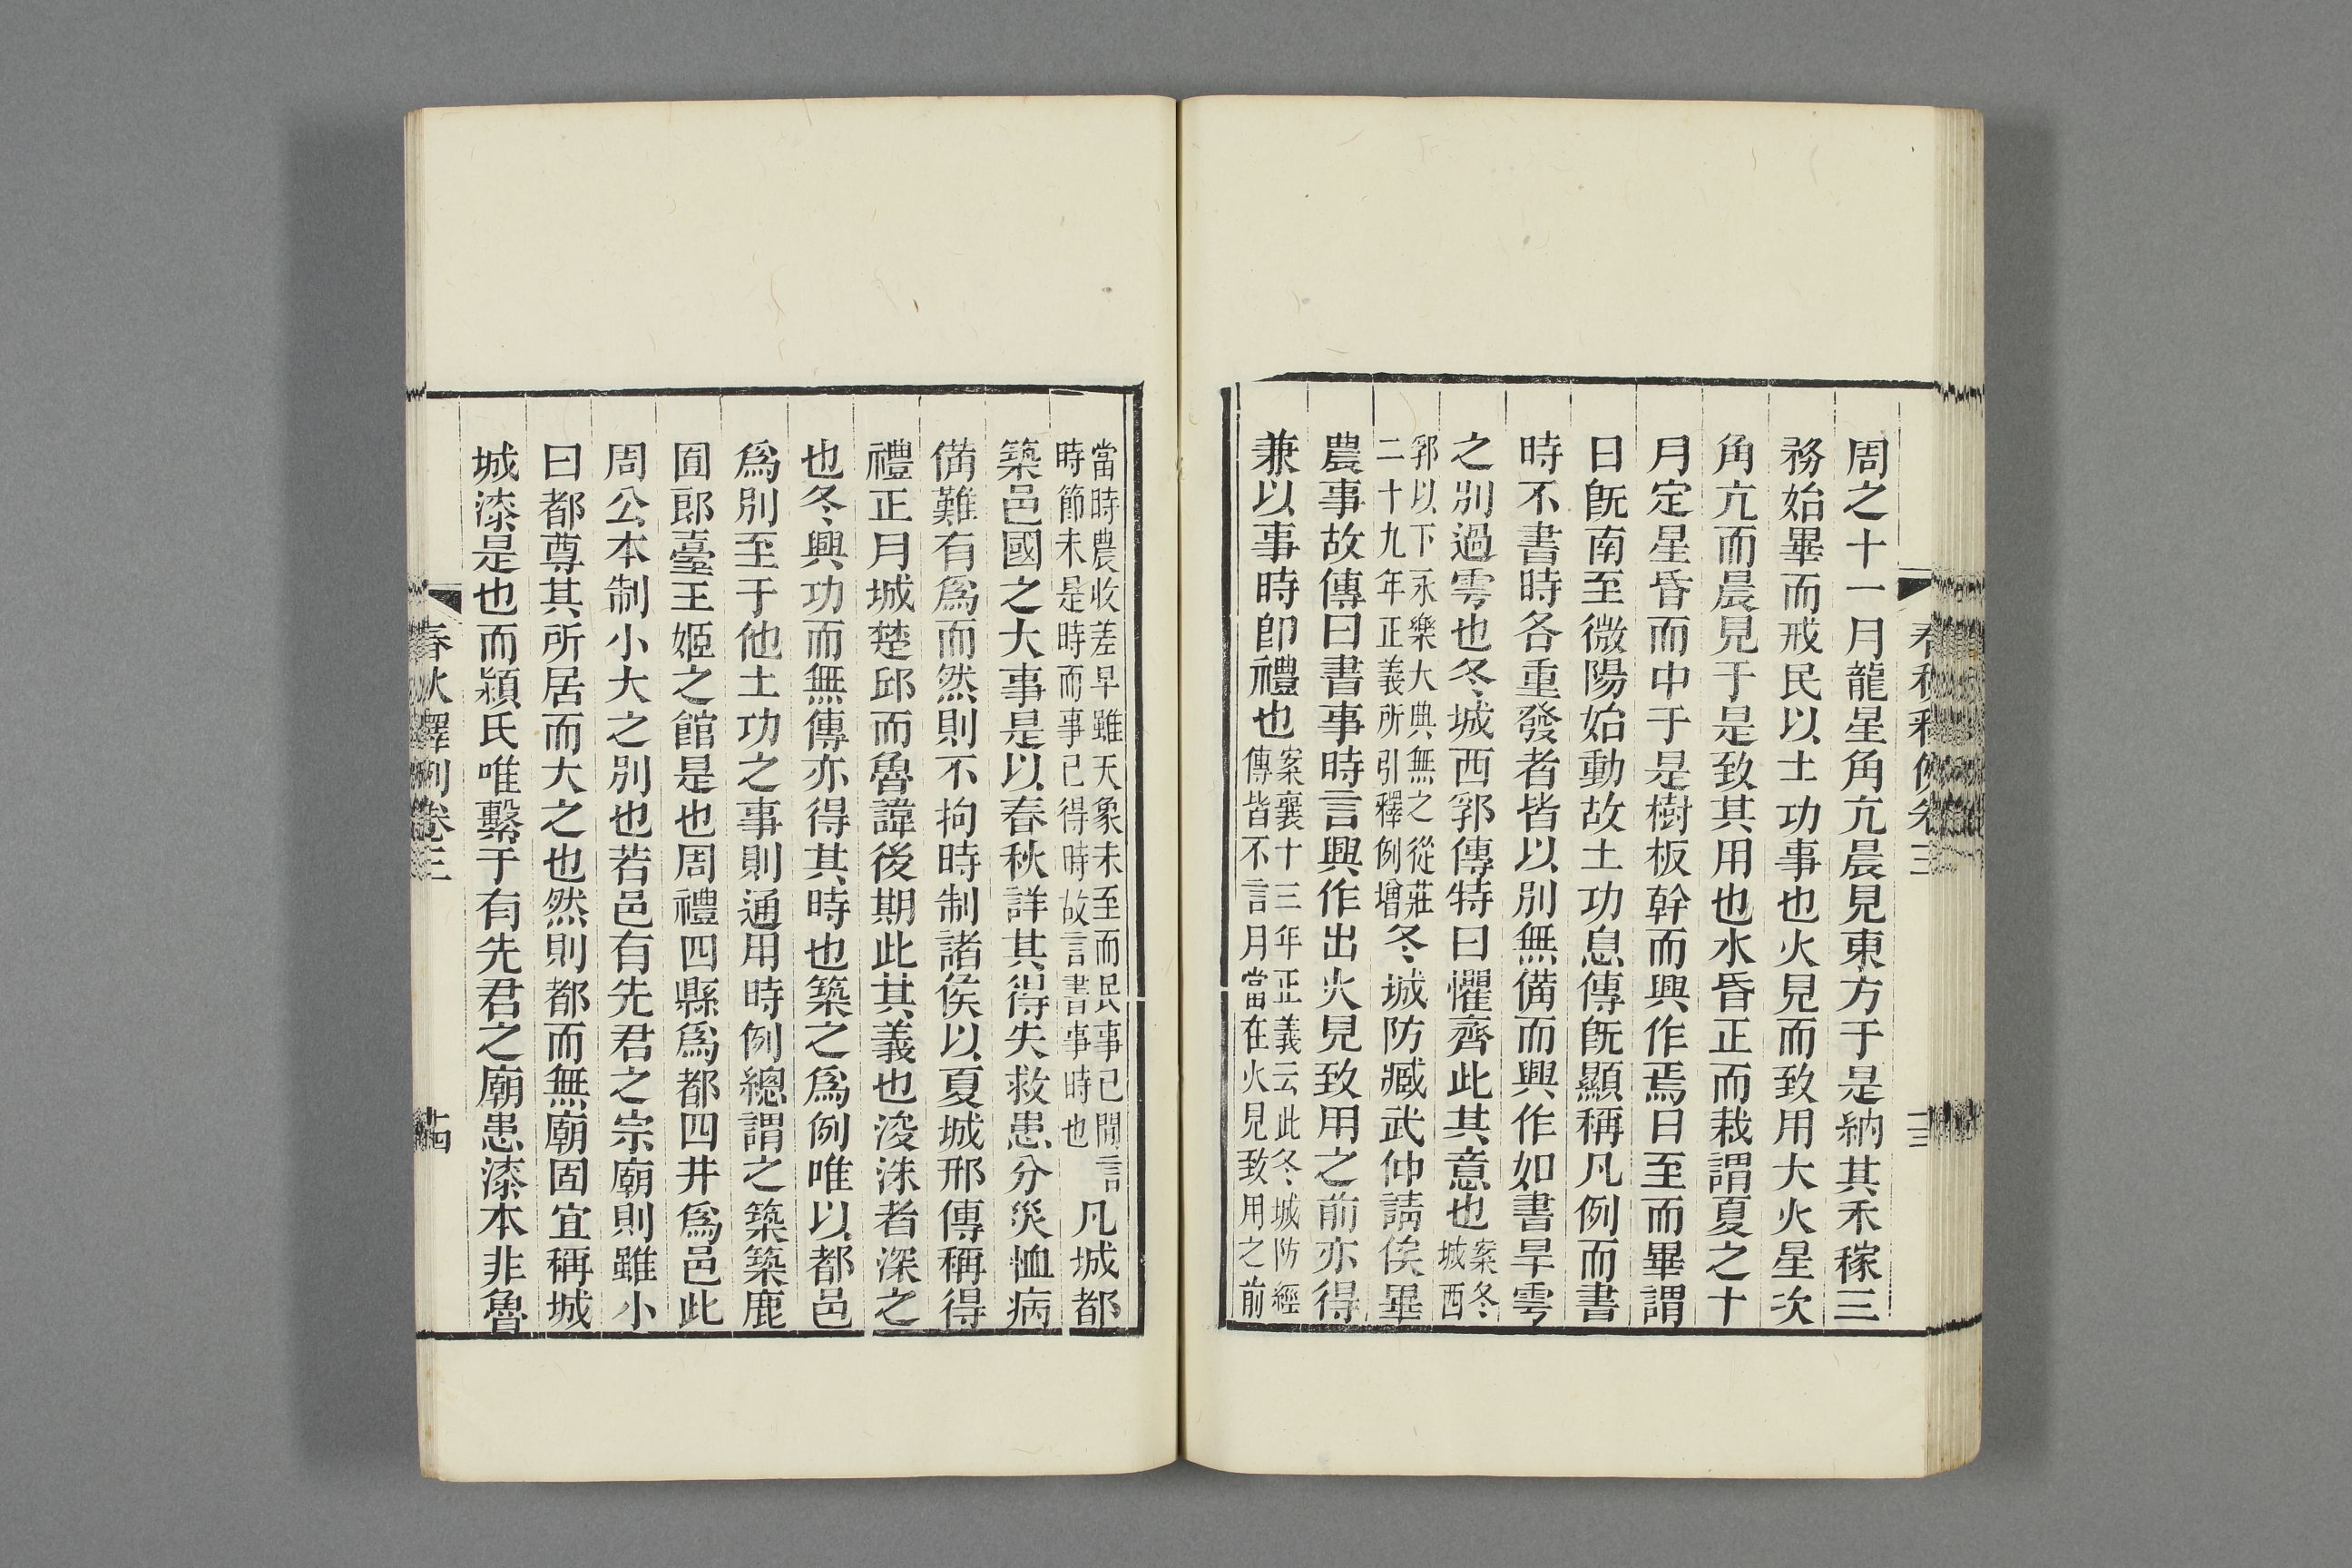 周之十一月龍星角亢晨見東方于是納其禾稼三
務始畢而戒民以土功事也火見而致用大火星次
角亢而晨見于是致其用也水昏正而栽謂夏之十
月定星昏而中于是樹板幹而興作焉日至而畢謂
日旣南至微陽始動故土功息傳旣顯稱凡例而書
時不書時各重發者皆以別無備而興作如書旱雩
之別過雩也冬城西郛傳特曰懼齊此其意也案冬城西
郛以下永樂大典無之從莊二十九年正義所引釋例增冬城防臧武仲請俟畢
農事故傳曰書事時言興作出火見致用之前亦得
兼以事時卽禮也案襄十三年正義云此冬城防經傳皆不言月當在火見致用之前
春秋釋例卷三
十三
當時農收差早雖天象未至而民事已閒言時節未是時而事已得時故言書事時也凡城都
築邑國之大事是以春秋詳其得失救患分災恤病
備難有爲而然則不拘時制諸侯以夏城邢傳稱得
禮正月城楚邱而魯諱後期此其義也浚洙者深之
也冬興功而無傳亦得其時也築之爲例唯以都邑
爲別至于他土功之事則通用時例總謂之築築鹿
囿郎臺王姬之館是也周禮四縣爲都四井爲邑此
周公本制小大之別也若邑有先君之宗廟則雖小
曰都尊其所居而大之也然則都而無廟固宜稱城
城漆是也而潁氏唯繫于有先君之廟患漆本非魯
春秋釋例卷三
十四